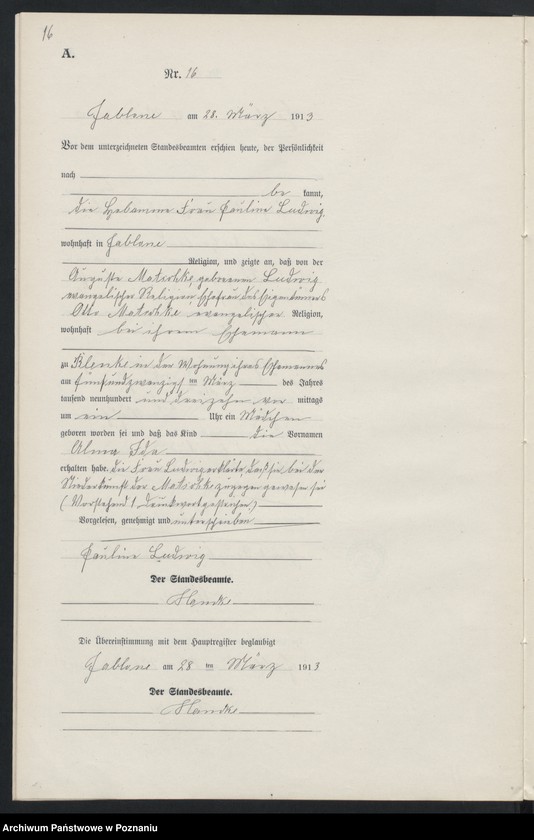 16
A.
Nr. 16
Jablone am 28. März 1913
Vor dem unterzeichneten Standesbeamten erschien heute, der Persönlichkeit
nach
be kannt,
die Hebamme Frau Pauline Ludwig,
wohnhaft in Jablone
Religion, und zeigte an, daß von der
Auguste Matschke, geborenen Ludwig
evangelischer Religion, Ehefrau des Eigentümers
Otto Matschke, evangelischer Religion,
wohnhaft bei ihrem Ehemann
zu Klenke in der Wohnung ihres Ehemannes
am fünfundzwanzigsten März des Jahres
tausend neunhundert und dreizehn vor mittags
um ein Uhr ein Mädchen
geboren worden sei und daß das Kind die Vornamen
Alma Ida
erhalten habe. Die Frau Ludwig erklärte, daß sie bei der
Niederkunft der Matschke zugegen gewesen sei
(Vorstehend 1 Druckwort gestrichen)
Vorgelesen, genehmigt und unterschrieben
Pauline Ludwig
Der Standesbeamte.
Die Übereinstimmung mit dem Hauptregister beglaubigt
Jablone am 28 ten März 1913
Der Standesbeamte.
Archiwum Państwowe w Poznaniu